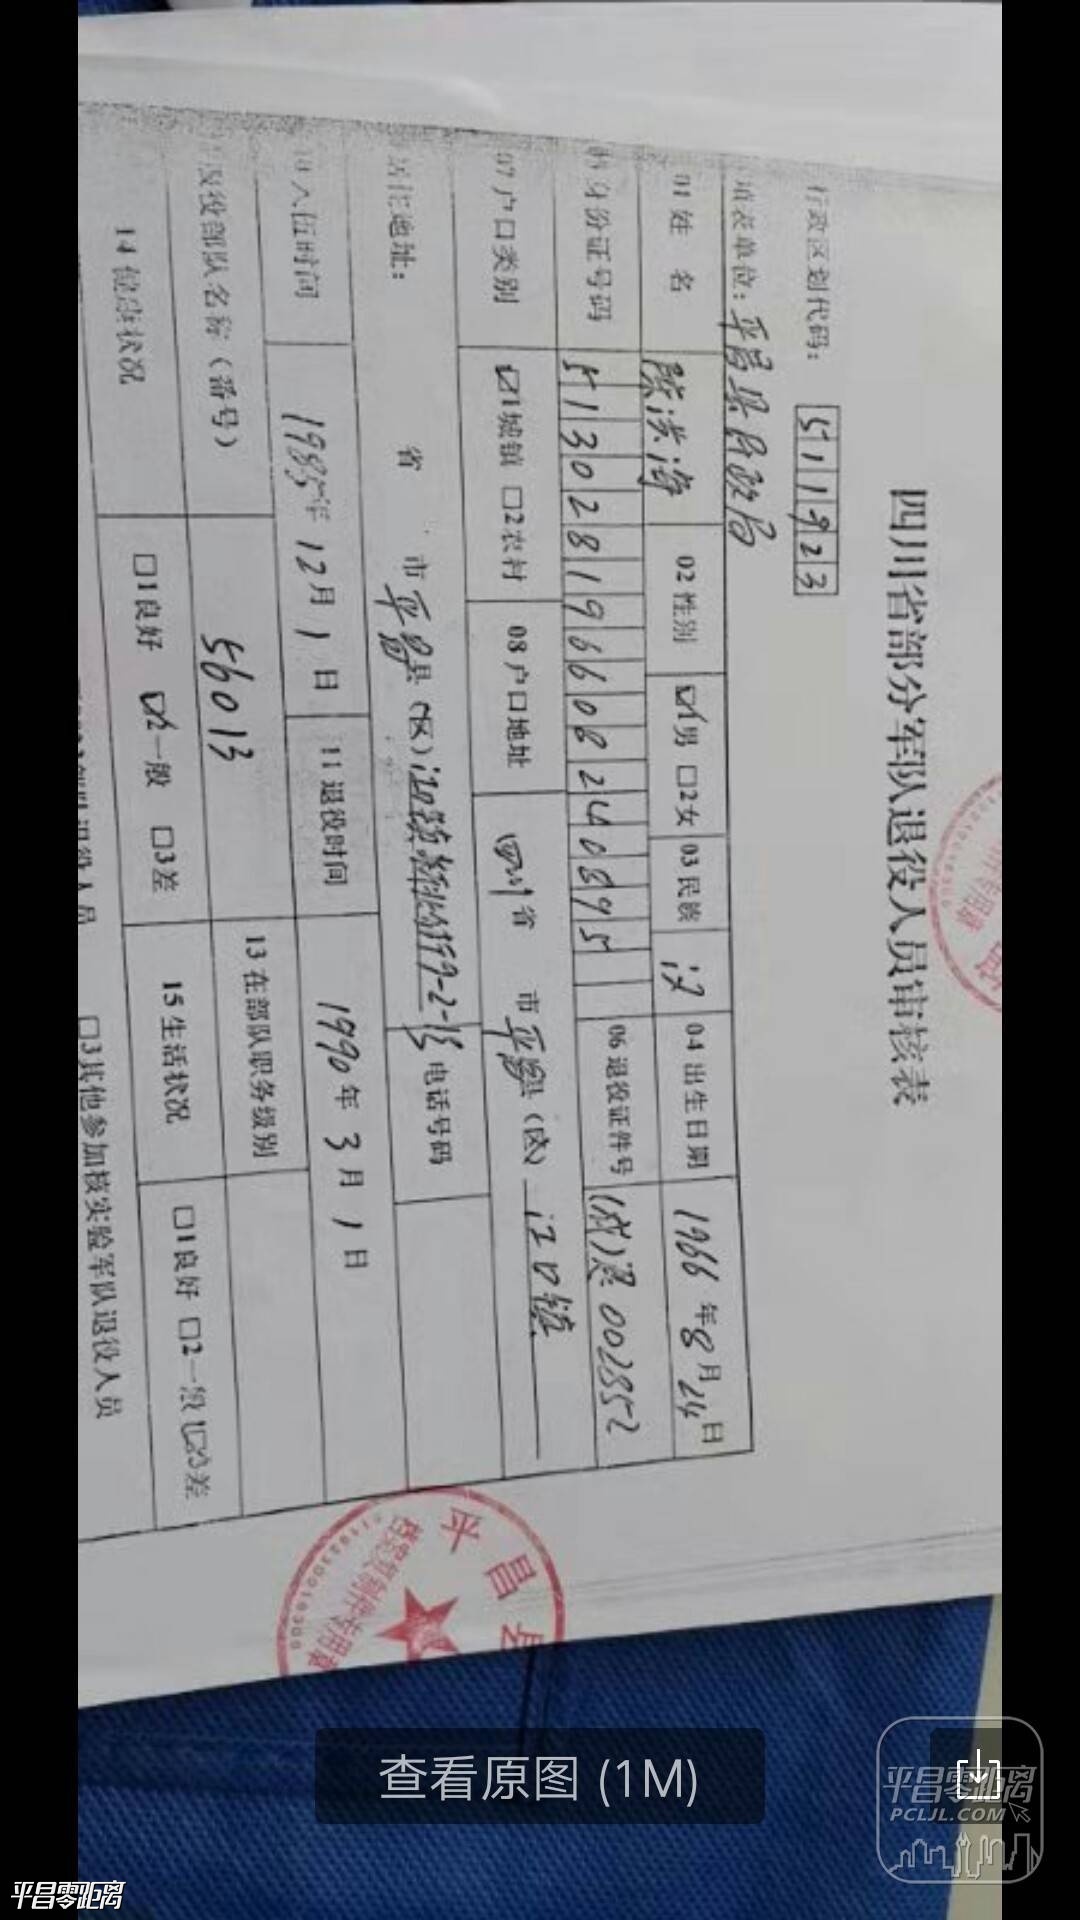 四川省部分军队退役人员审核表
行政区划代码： 511923
填表单位：平昌县民政局
01 姓 名 陈洪海 02 性别 ☑1男 □2女 03 民族 汉 04 出生日期 1966 年 8 月 24 日
05 身份证号码 513028196608240895 06 退役证件号 002352
07 户口类别 ☑1城镇 □2农村 08 户口地址 四川 省 市 平昌 县（区） 江口镇
居住地址： 省 市 平昌 县（区） 江口镇 9-2-15 电话号码
10 入伍时间 1985 年 12 月 1 日 11 退役时间 1990 年 3 月 1 日
服役部队名称（番号） 56013 13 在部队职务级别
14 健康状况 □1良好 ☑2一般 □3差 15 生活状况 □1良好 □2一般 ☑3差
退役人员 □3其他参加核实验军队退役人员
平昌县
档案复制件专用章
查看原图 (1M)
平昌零距离
PCLJL.COM
平昌零距离